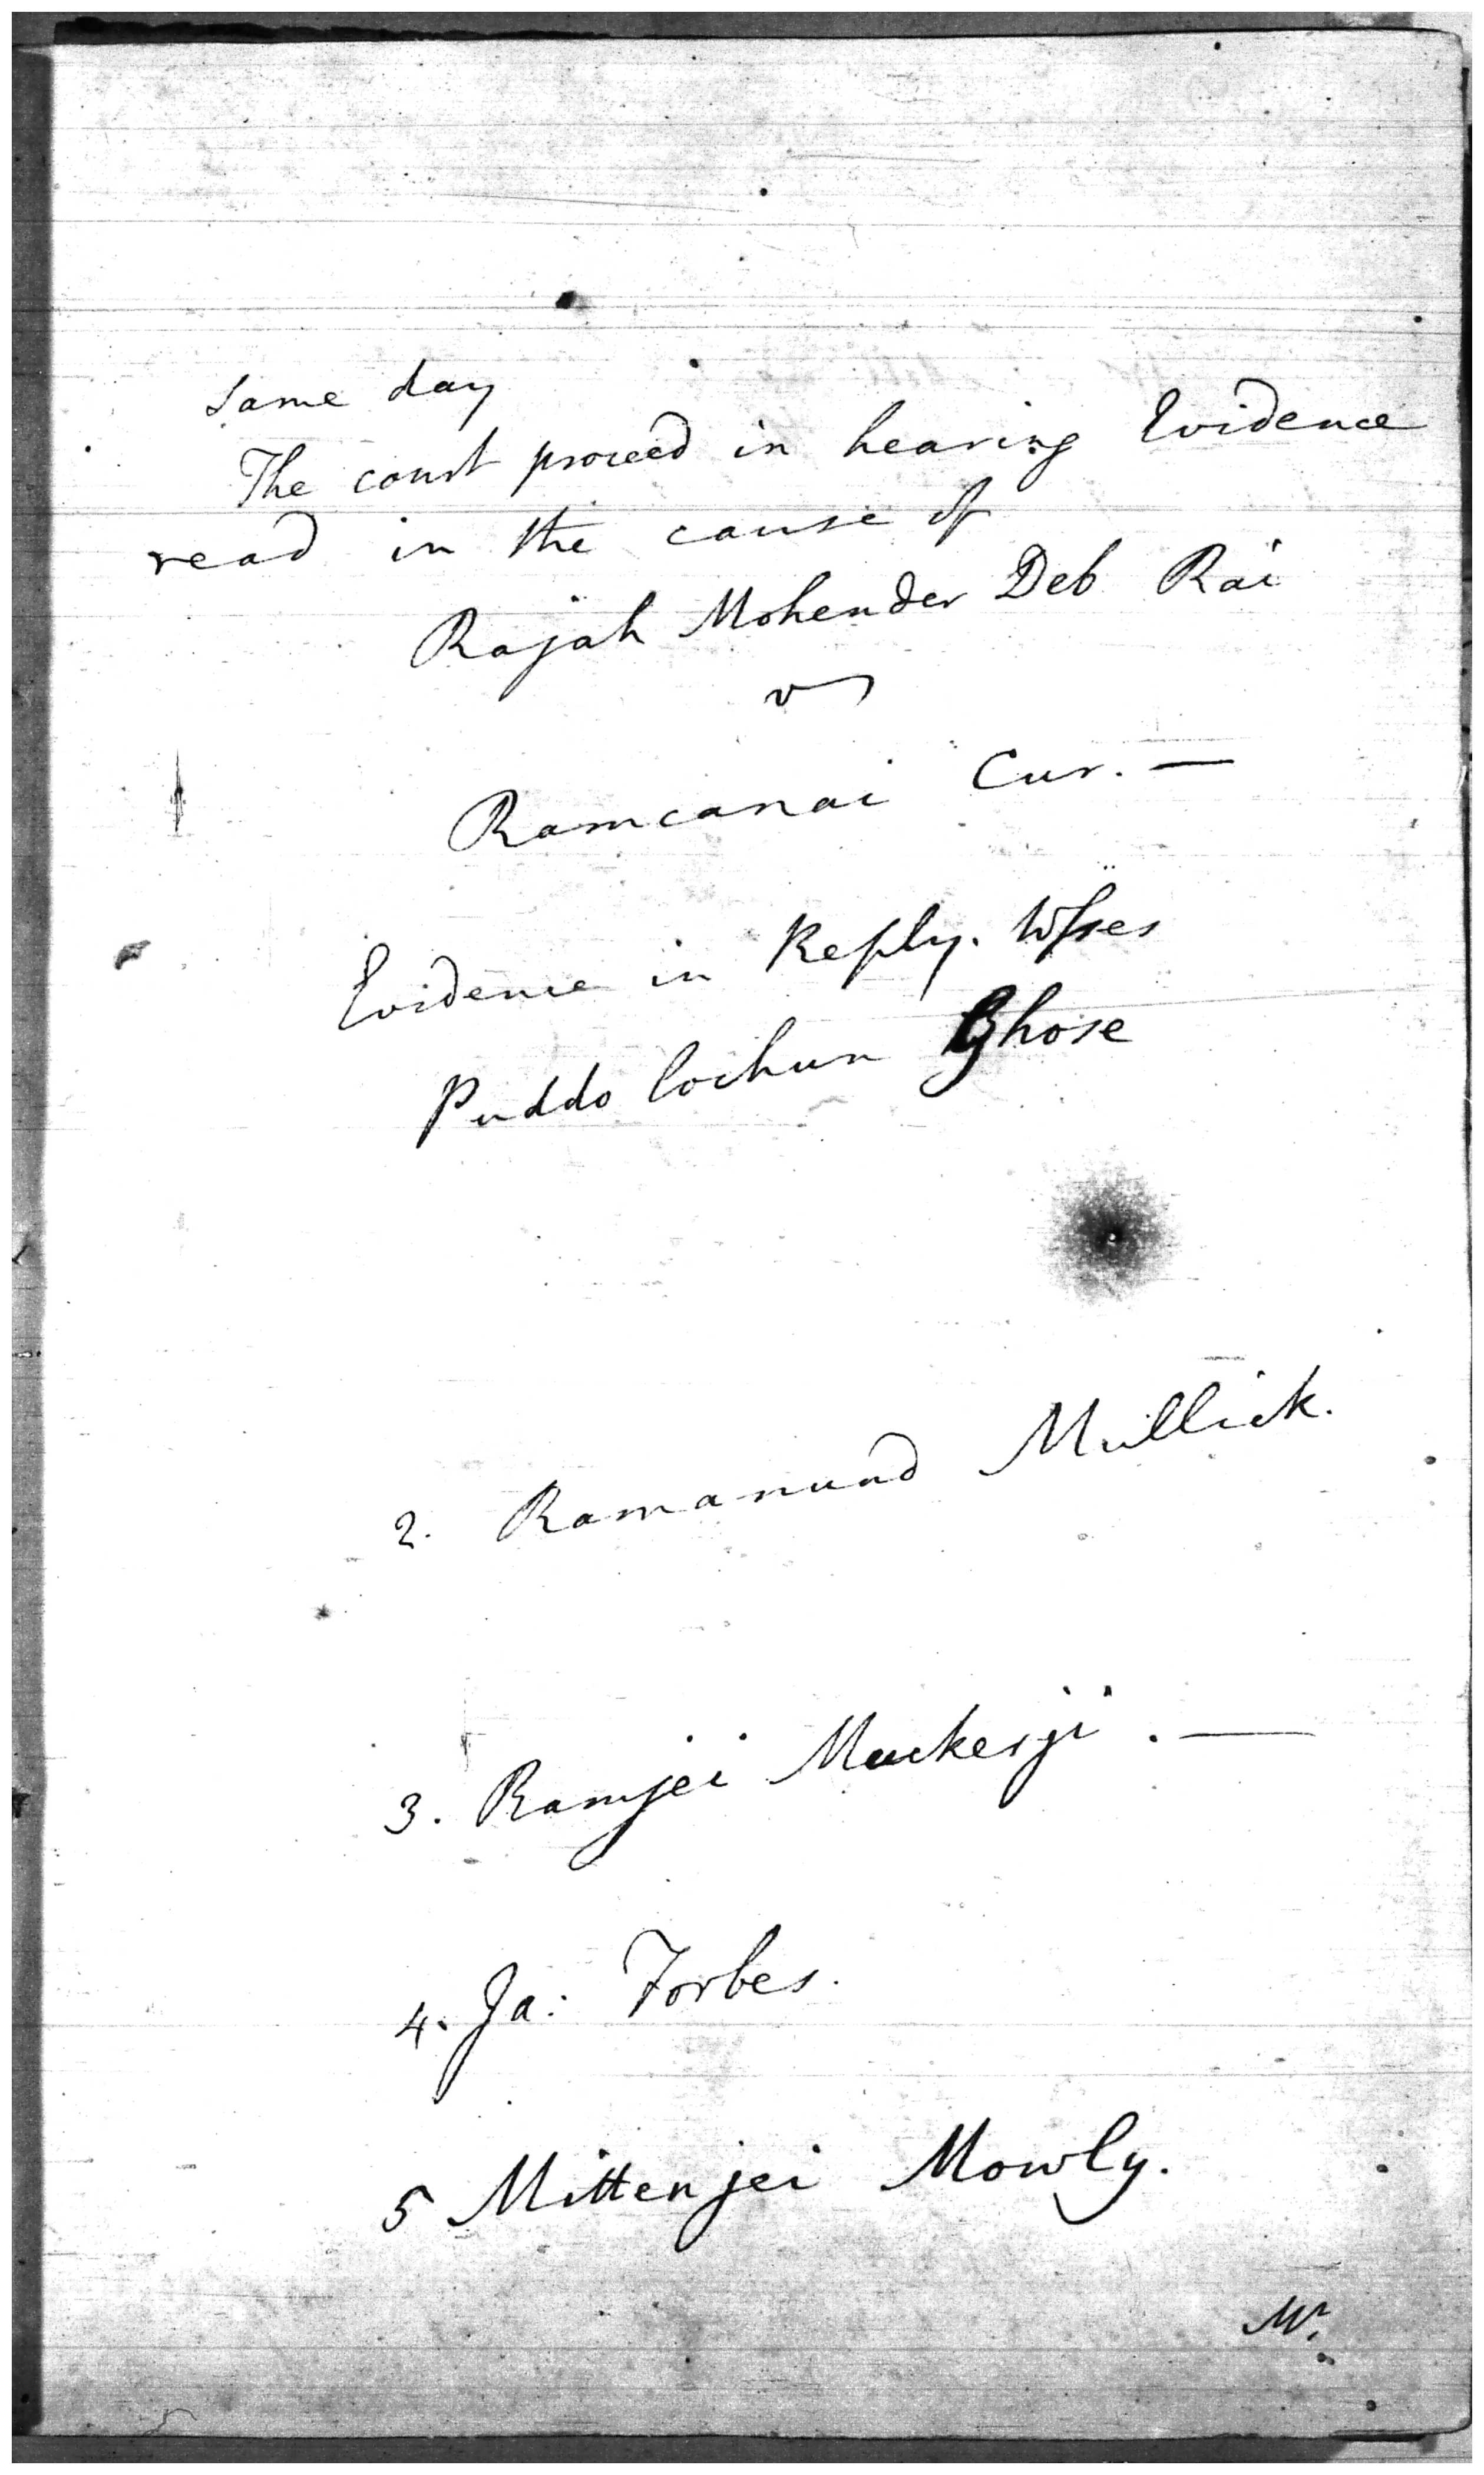 same day
The court proceed in hearing Evidence
read in the cause of
Rajah Mohender Deb Rai
vs
Ramcanai Cur. —
Evidence in Reply. Wsses
Puddo lochun Ghose
2. Ramanund Mullick.
3. Ramjei Muckerji . —
4. Ja: Forbes.
5 Mittenjei Mowly.
Mr.